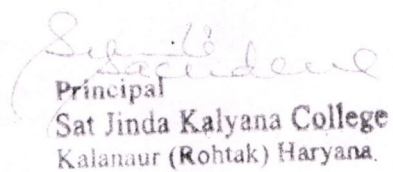 Principal
Sat Jinda Kalyana College
Kalanaur (Rohtak) Haryana.